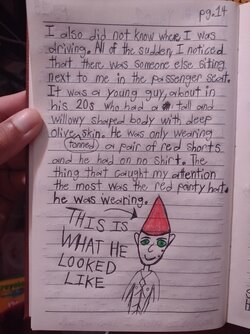 pg.14
I also did not know where I was
driving. All of the sudden, I noticed
that there was someone else siting
next to me in the passenger seat.
It was a young guy, about in
his 20s who had a tall and
willowy shaped body with deep
olive skin. He was only wearing
(tanned) a pair of red shorts
and he had on no shirt. The
thing that caught my attention
the most was the red pointy hat
he was wearing.
THIS IS
WHAT HE
LOOKED
LIKE